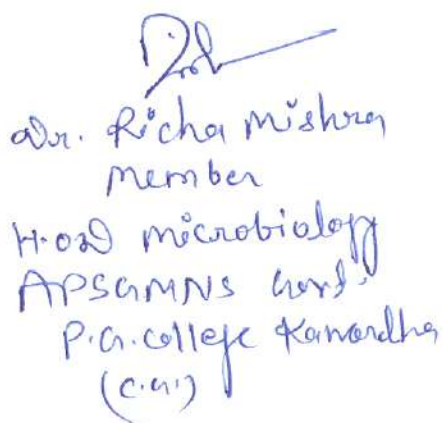 Dr. Richa Mishra
Member
H.O.D Microbiology
APSGMNS Govt.
P.G. College Kawardha
(C.G.)